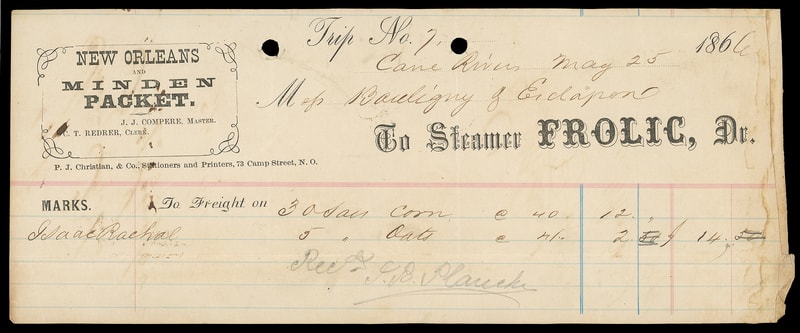 Trip No. 7.
1866
NEW ORLEANS
AND
MINDEN
PACKET.
J. J. COMPERE, MASTER.
T. REDRER, CLERK.
P. J. Christian, & Co., Stationers and Printers, 73 Camp Street, N. O.
Cane River May 25
Mess Bouligny &
To Steamer FROLIC, Dr.
MARKS. To Freight on 30 Sacks Corn @ 40. 12. "
Isaac Rachal 5 " Oats @ 2 14.
Recd.